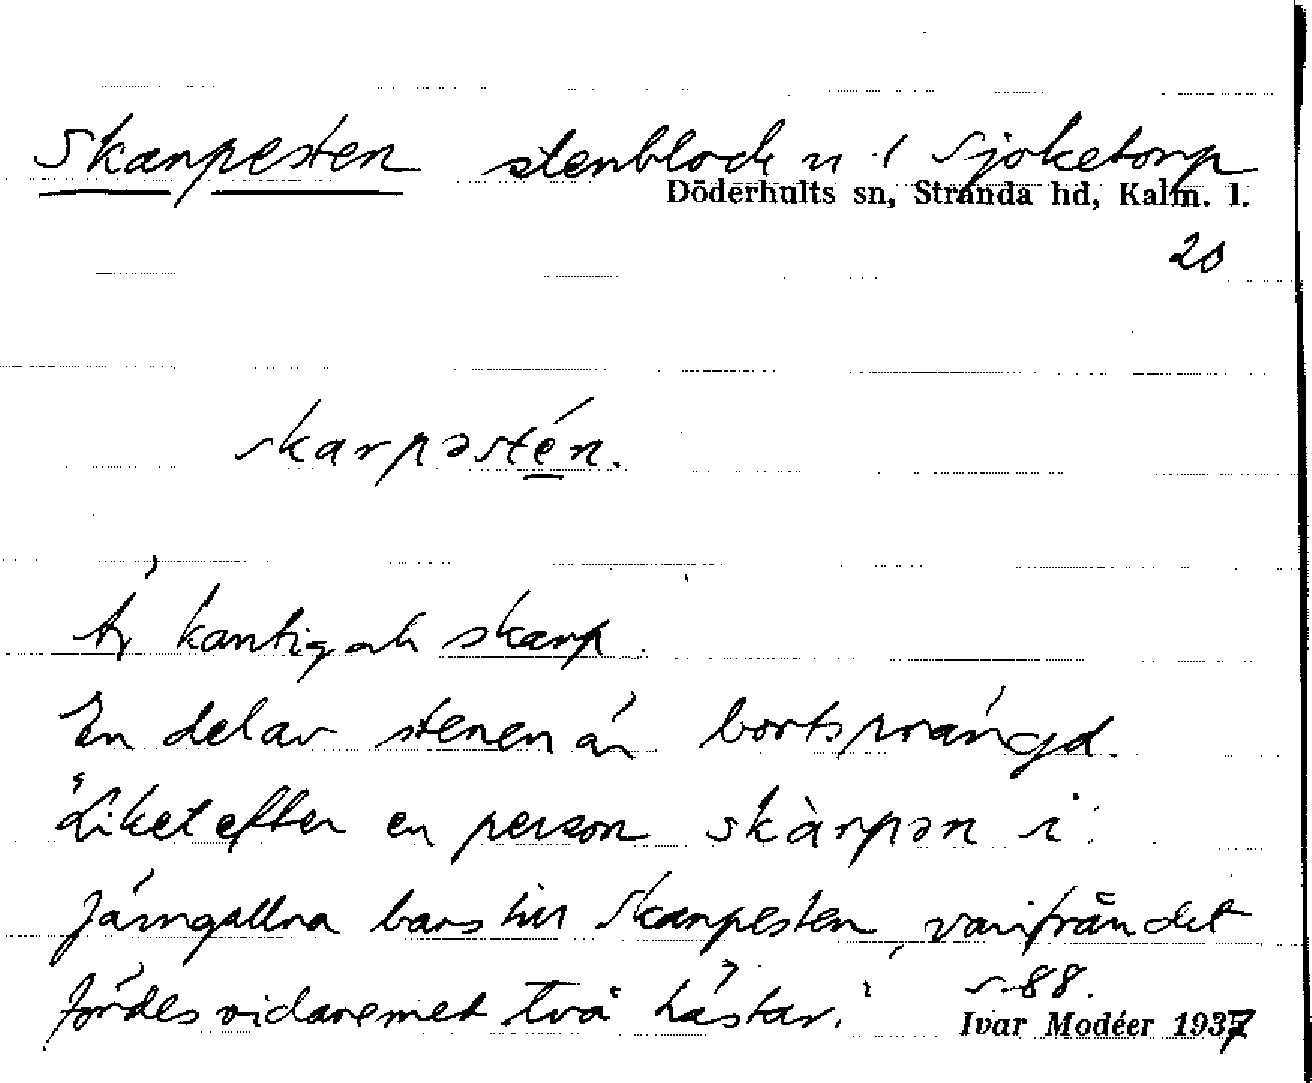 Skarpesten stenblock n. i Sjöketorp
Döderhults sn, Stranda hd, Kalm. l.
20
skarpəstén.
Är kantig och skarp.
En del av stenen är bortsprängd.
"Liket efter en person skàrpən i
Järngallra bars till Skarpesten, varifrån det
fördes vidare med två hästar." s. 88.
Ivar Modéer 1937